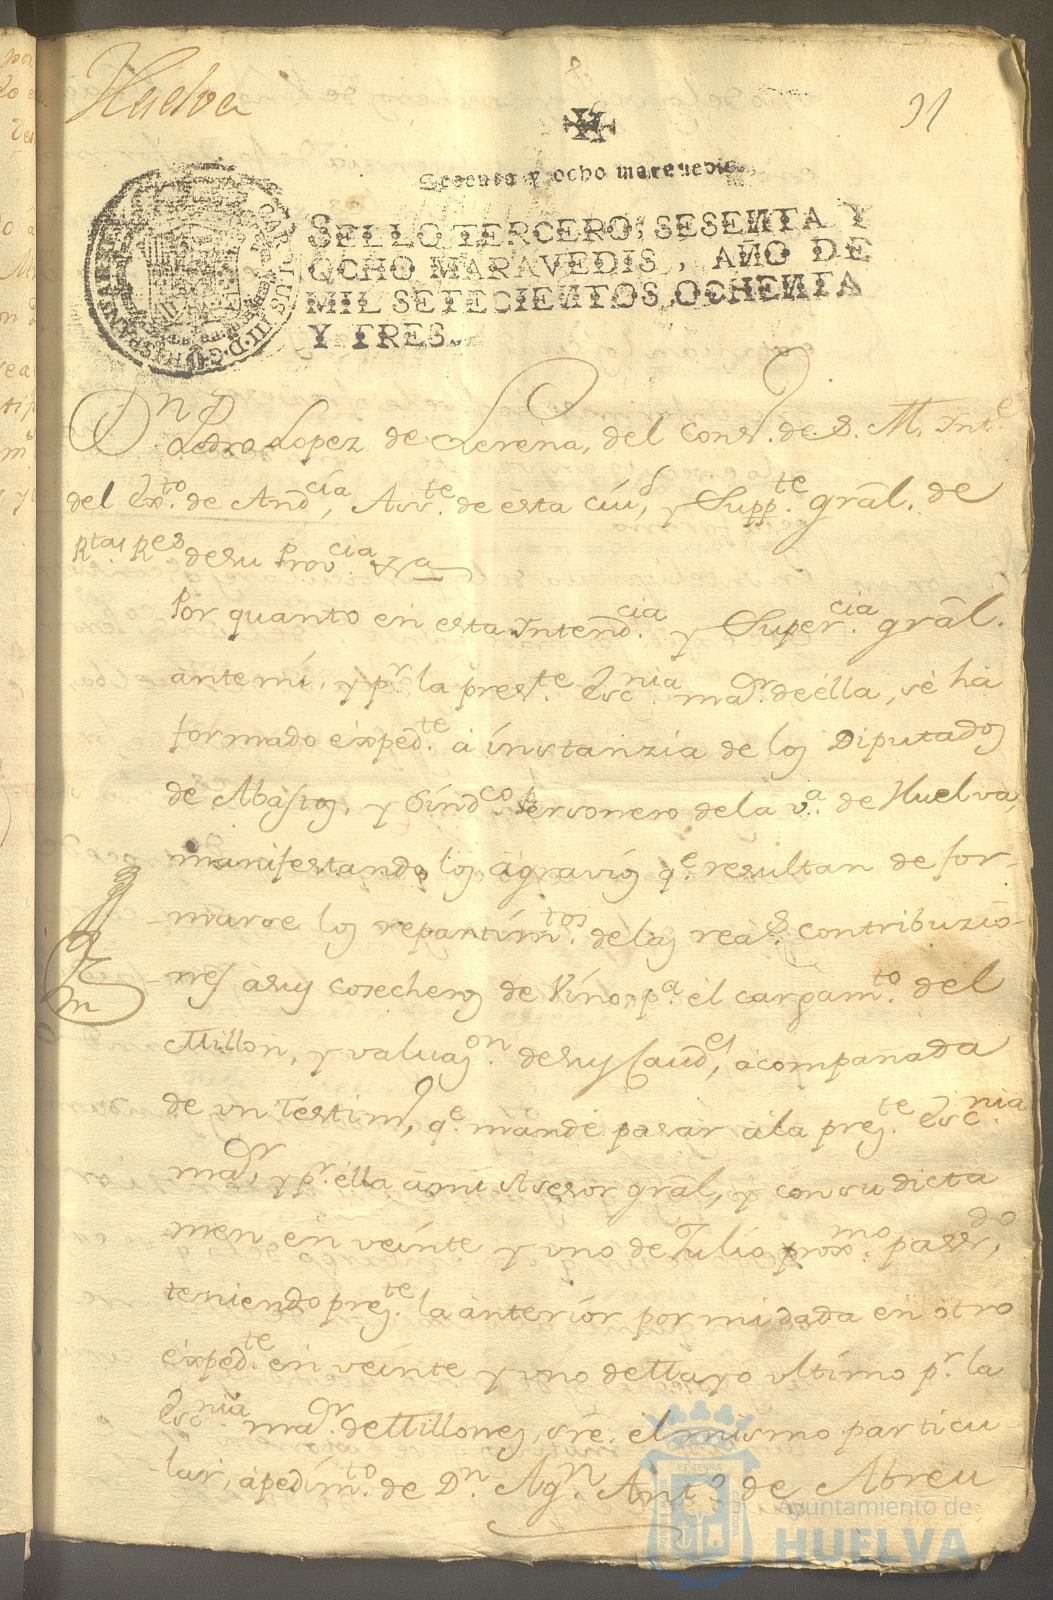 Huelva
91
Sesenta y ocho maravedis.
SELLO TERCERO, SESENTA Y
OCHO MARAVEDIS, AÑO DE
MIL SETECIENTOS OCHENTA
Y TRES.
Dn Pedro Lopez de Lerena, del Cons.º de S. M. Int.e
del Ex.to de And.cia, Ass.te de esta ciud, y Supp.te grãl. de
R.tas R.es de su Prov.cia &.a
Por quanto en esta Intend.cia y Super.cia grãl.
ante mi, y p.r la pres.te Esc.nia ma.r de élla, se há
formado exped.te á instanzia de los Diputados
de Abastos, y Sínd.co Personero de la v.a de Huelva,
manifestando los agravios q.e resultan de for-
marse los repartim.tos de las rea.s contribuzio-
nes á sus Cosecheros de Vino, p.a el cargam.to del
Millon, y valuaz.on de sus Caud.es, acompañada
de un Testim.o, q.e mandé pasar á la pres.te Esc.nia
ma.r, y p.r élla á mi Asesor grãl, y con su dicta
men en veinte y uno de Julio prox.mo pasa.do,
teniendo pres.te la anterior por mi dada en otro
exped.te en veinte y uno de Mayo ultimo p.r la
Esc.nia ma.r de Millones, sre. el mismo particu
lar, á pedim.to de D.n Ag.n Ant.o de Abreu
Ayuntamiento de
HUELVA